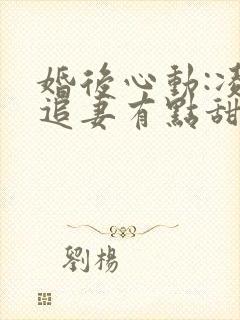 婚後心動:凌
追妻有點甜
劉楊